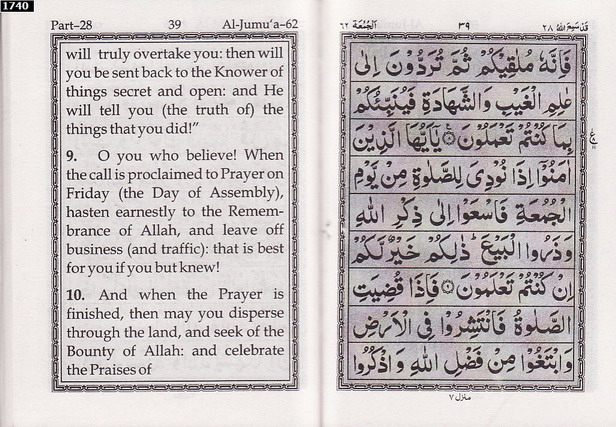 1740
Part–28 39 Al-Jumu‘a–62
will truly overtake you: then will
you be sent back to the Knower of
things secret and open: and He
will tell you (the truth of) the
things that you did!”
9. O you who believe! When
the call is proclaimed to Prayer on
Friday (the Day of Assembly),
hasten earnestly to the Remem-
brance of Allah, and leave off
business (and traffic): that is best
for you if you but knew!
10. And when the Prayer is
finished, then may you disperse
through the land, and seek of the
Bounty of Allah: and celebrate
the Praises of
قد سمع الله ٢٨ ٣٩ الجمعة ٦٢
فَاِنَّهٗ مُلٰقِيْكُمْ ثُمَّ تُرَدُّوْنَ اِلٰى
عٰلِمِ الْغَيْبِ وَالشَّهَادَةِ فَيُنَبِّئُكُمْ
بِمَا كُنْتُمْ تَعْمَلُوْنَ ۝٨ يٰۤاَيُّهَا الَّذِيْنَ
اٰمَنُوْۤا اِذَا نُوْدِىَ لِلصَّلٰوةِ مِنْ يَّوْمِ
الْجُمُعَةِ فَاسْعَوْا اِلٰى ذِكْرِ اللّٰهِ
وَذَرُوا الْبَيْعَ ؕ ذٰلِكُمْ خَيْرٌ لَّكُمْ
اِنْ كُنْتُمْ تَعْلَمُوْنَ ۝٩ فَاِذَا قُضِيَتِ
الصَّلٰوةُ فَانْتَشِرُوْا فِى الْاَرْضِ
وَابْتَغُوْا مِنْ فَضْلِ اللّٰهِ وَاذْكُرُوا
منزل ٧